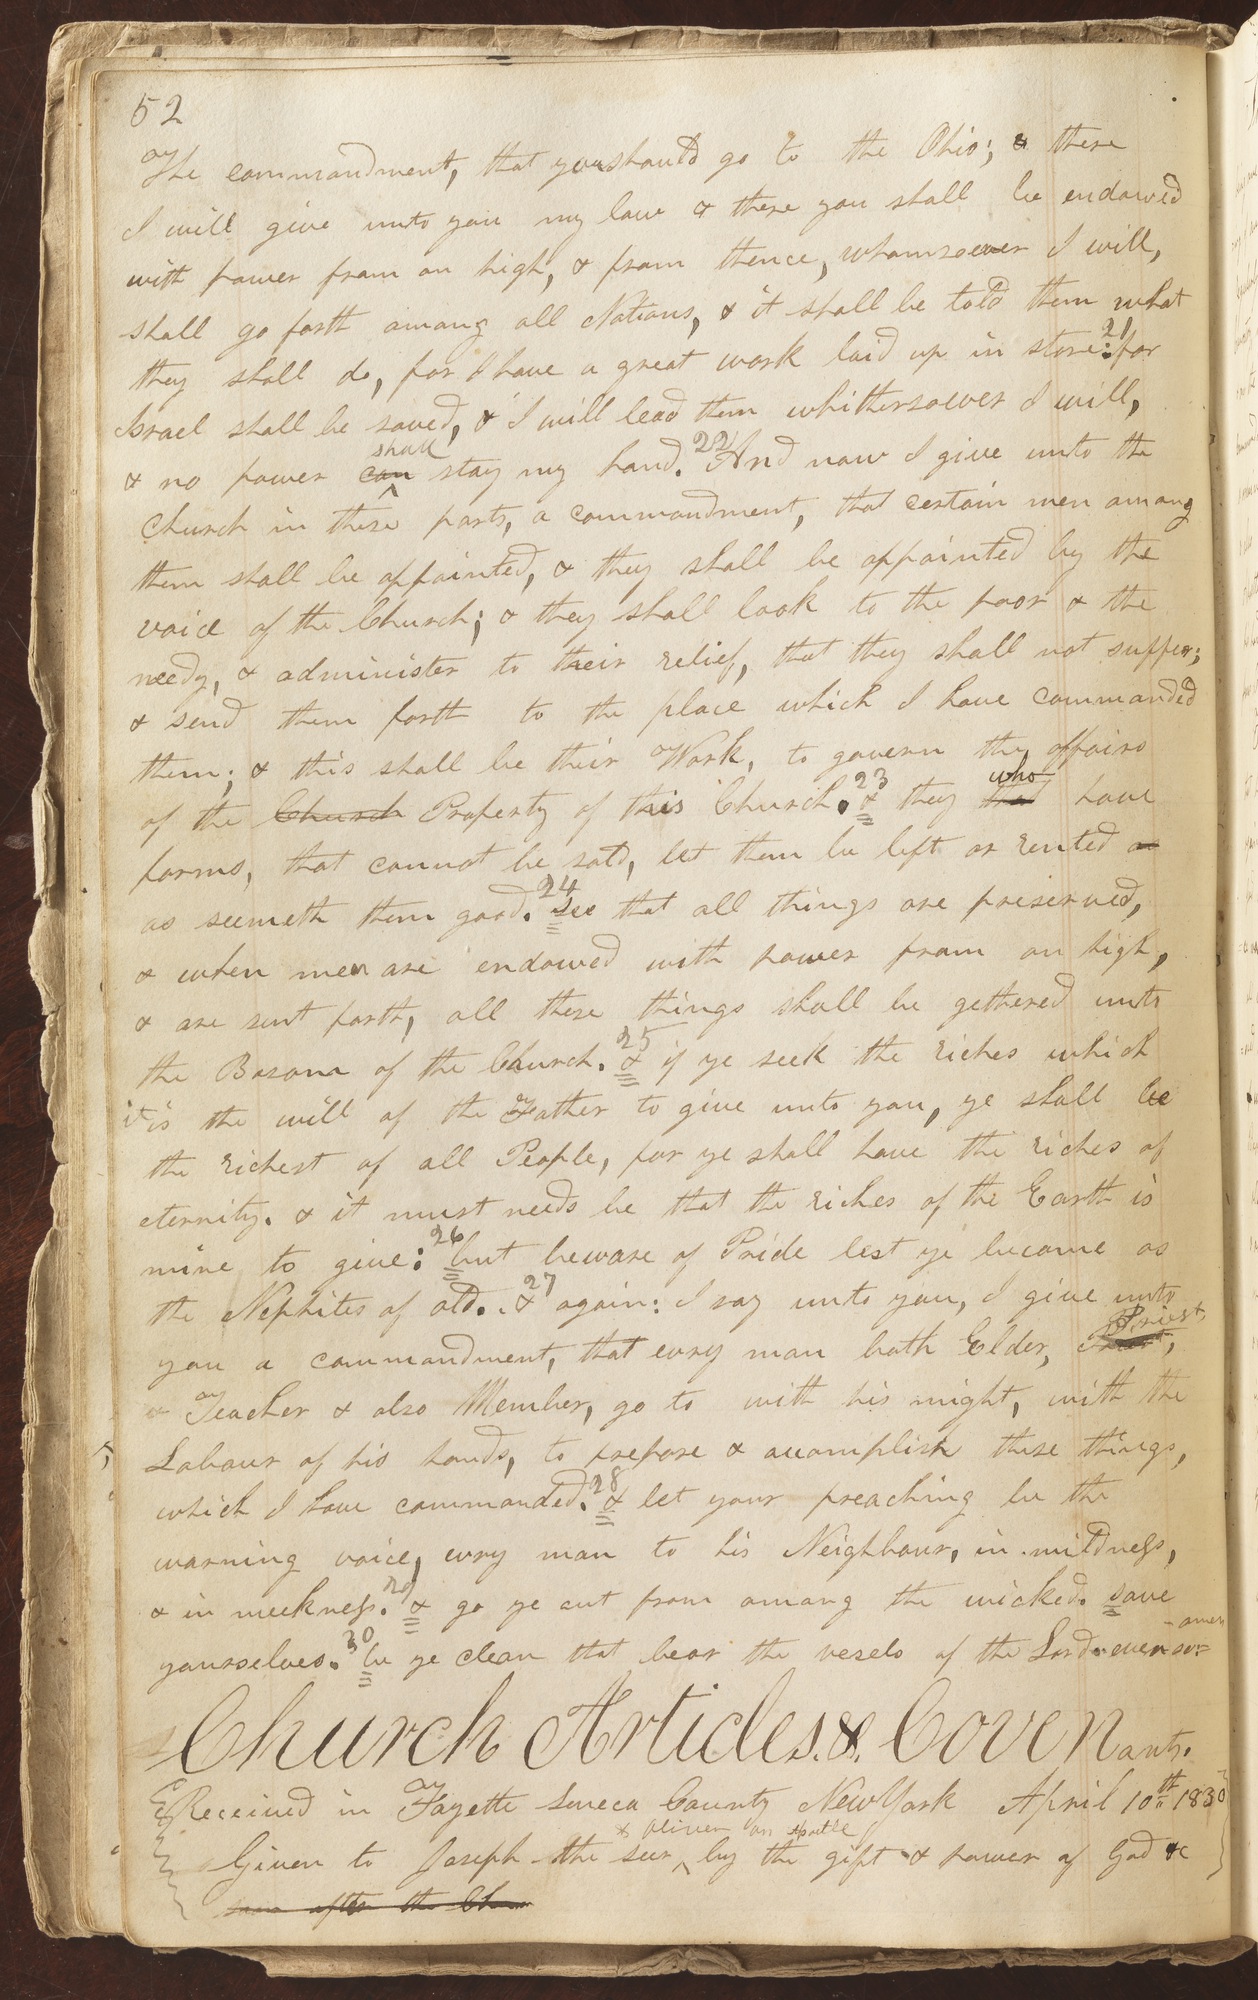 52
The commandment, that you should go to the Ohio; & there
I will give unto you my law & there you shall be endowed
with power from on high, & from thence, whomsoever I will,
shall go forth among all Nations, & it shall be told them what
they shall do, for I have a great work laid up in store: 21 for
Israel shall be saved, & I will lead them whithersoever I will,
shall
& no power can stay my hand. 22 And now I give unto the
Church in these parts, a commandment, that certain men among
them shall be appointed, & they shall be appointed by the
voice of the Church; & they shall look to the poor & the
needy, & administer to their relief, that they shall not suffer;
& send them forth to the place which I have commanded
them; & this shall be their Work, to govern the affairs
who
of the Church Property of this Church. 23 & they that have
farms, that cannot be sold, let them be left or rented
as seemeth them good. 24 See that all things are preserved,
& when men are endowed with power from on high,
& are sent forth, all these things shall be gethered unto
the Bosom of the Church. 25 & if ye seek the riches which
it is the will of the Father to give unto you, ye shall be
the richest of all People, for ye shall have the riches of
eternity. & it must needs be that the riches of the Earth is
mine to give: 26 but beware of Pride lest ye become as
the Nephites of old. 27 & again: I say unto you, I give unto
Priest,
you a commandment, that evry man both Elder,
& Teacher & also Member, go to with his might, with the
Labour of his hands, to prepare & accomplish these things,
which I have commanded. 28 & let your preaching be the
warning voice, evry man to his Neighbour, in mildness,
& in meekness. 29 & go ye out from among the wicked. save
amen
yourselves. 30 be ye clean that bear the vesels of the Lord even so=
Church Articles. &. Covenants.
Received in Fayette Seneca County New York April 10th 1830
& Oliver an Apostle
Given to Joseph the seer by the gift & power of God &c
same after the